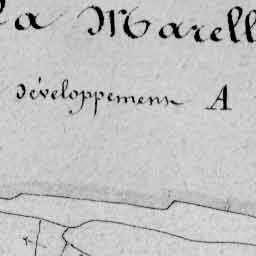 la Marell
Développement A